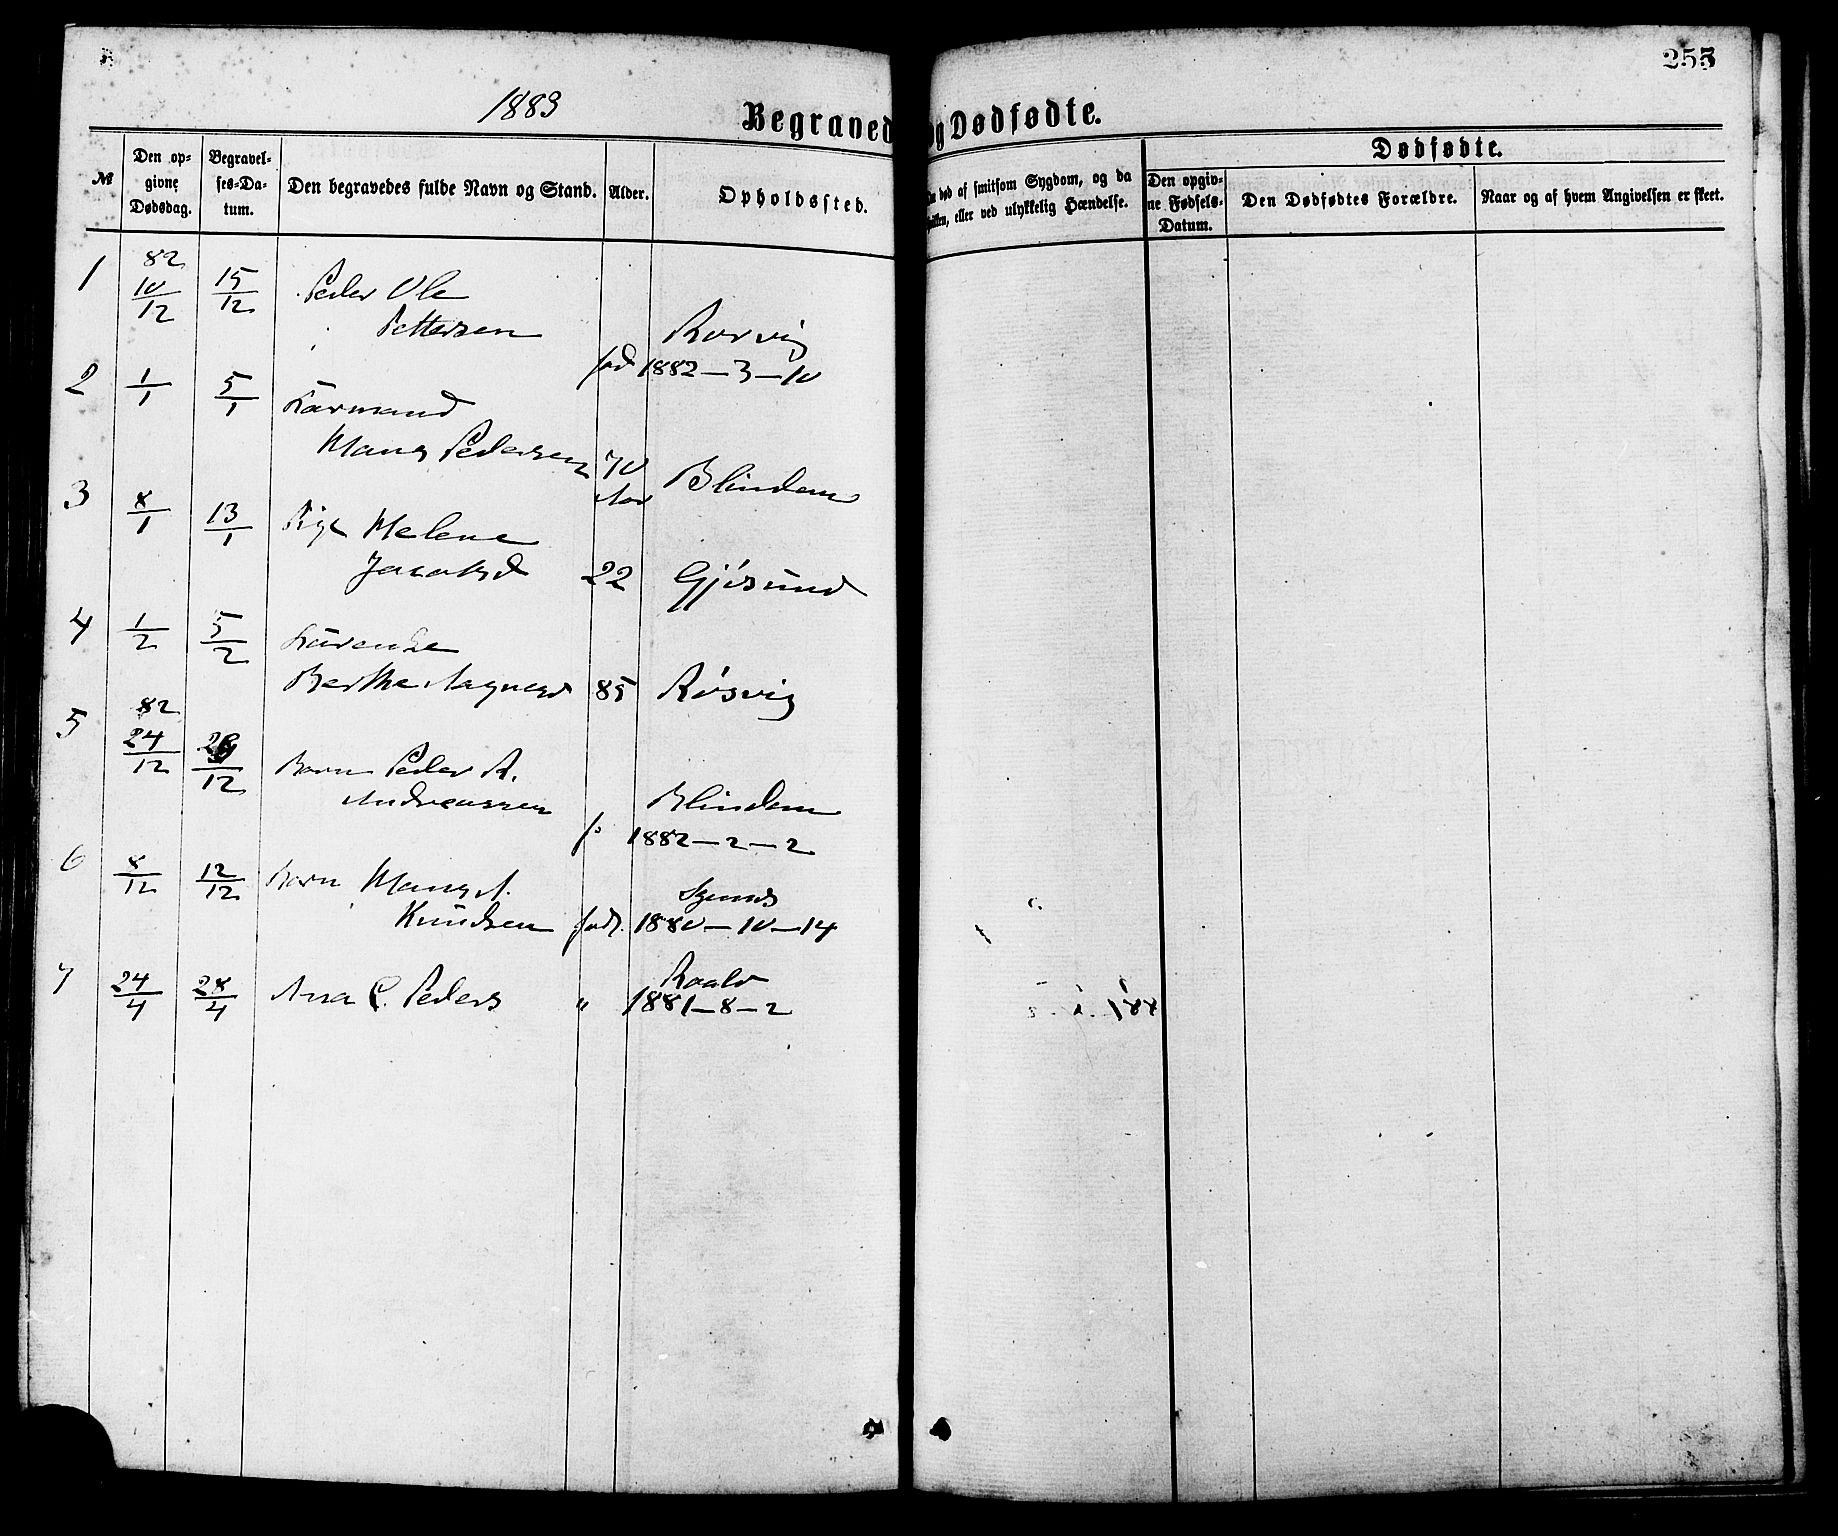 253
1883
Begraved og Dødfødte.
Dødfødte.
№
Den op-
givne
Dødsdag.
Begravel-
ses-Da-
tum.
Den begravedes fulde Navn og Stand.
Alder.
Opholdssted.
ved af smitsom Sygdom, og da
eller ved ulykkelig Hændelse.
Den opgiv-
ne Fødsels-
Datum.
Den Dødfødtes Forældre.
Naar og af hvem Angivelsen er skeet.
1 82 10/12 15/12 Peder Ole
Pettersen Rørvig
fød 1882-3-10
2 1/1 5/1 Kaarmand
Mans Pedersen 70 Aar Blindem
3 8/1 13/1 Pige Helene
Jacobsd 22 Gjøsund
4 1/2 5/2
Berthe Aagesd 85 Røsvig
5 82 24/12 /12 Barn Peder A.
Andreassen Blindem
f. 1882-2-2
6 8/12 12/12 Barn Mans A.
Knudsen fød. 1880-10-14
7 24/4 28/4 Ana C. Peders Roald
" 1881-8-2